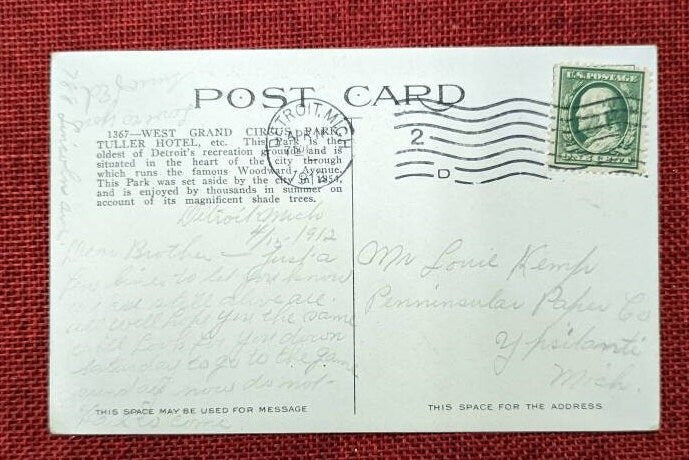 POST CARD
1367—WEST GRAND CIRCUS PARK,
TULLER HOTEL, etc. This Park is the
oldest of Detroit's recreation grounds and is
situated in the heart of the city through
which runs the famous Woodward Avenue.
This Park was set aside by the city in 1854,
and is enjoyed by thousands in summer on
account of its magnificent shade trees.
DETROIT, MICH.
APR
2
D
U.S. POSTAGE
Detroit Mich
4/12-1912
Dear Brother — Just a
few lines to let you know
we are still alive
will hope you the same
will look for you down
Saturday to go to the game
now do not
come
THIS SPACE MAY BE USED FOR MESSAGE
Mr Louie Kemp
Penninsular Paper Co
Ypsilanti
Mich.
THIS SPACE FOR THE ADDRESS